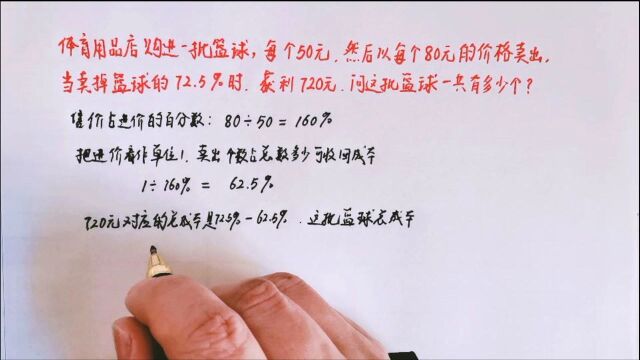 体育用品店购进一批篮球，每个50元，然后以每个80元的价格卖出，
当卖掉篮球的72.5%时，获利720元，问这批篮球一共有多少个？
售价占进价的百分数：80÷50=160%
把进价看作单位1，卖出个数占总数多少可收回成本
1÷160% = 62.5%
720元对应的总成本是72.5%-62.5%，这批篮球总成本